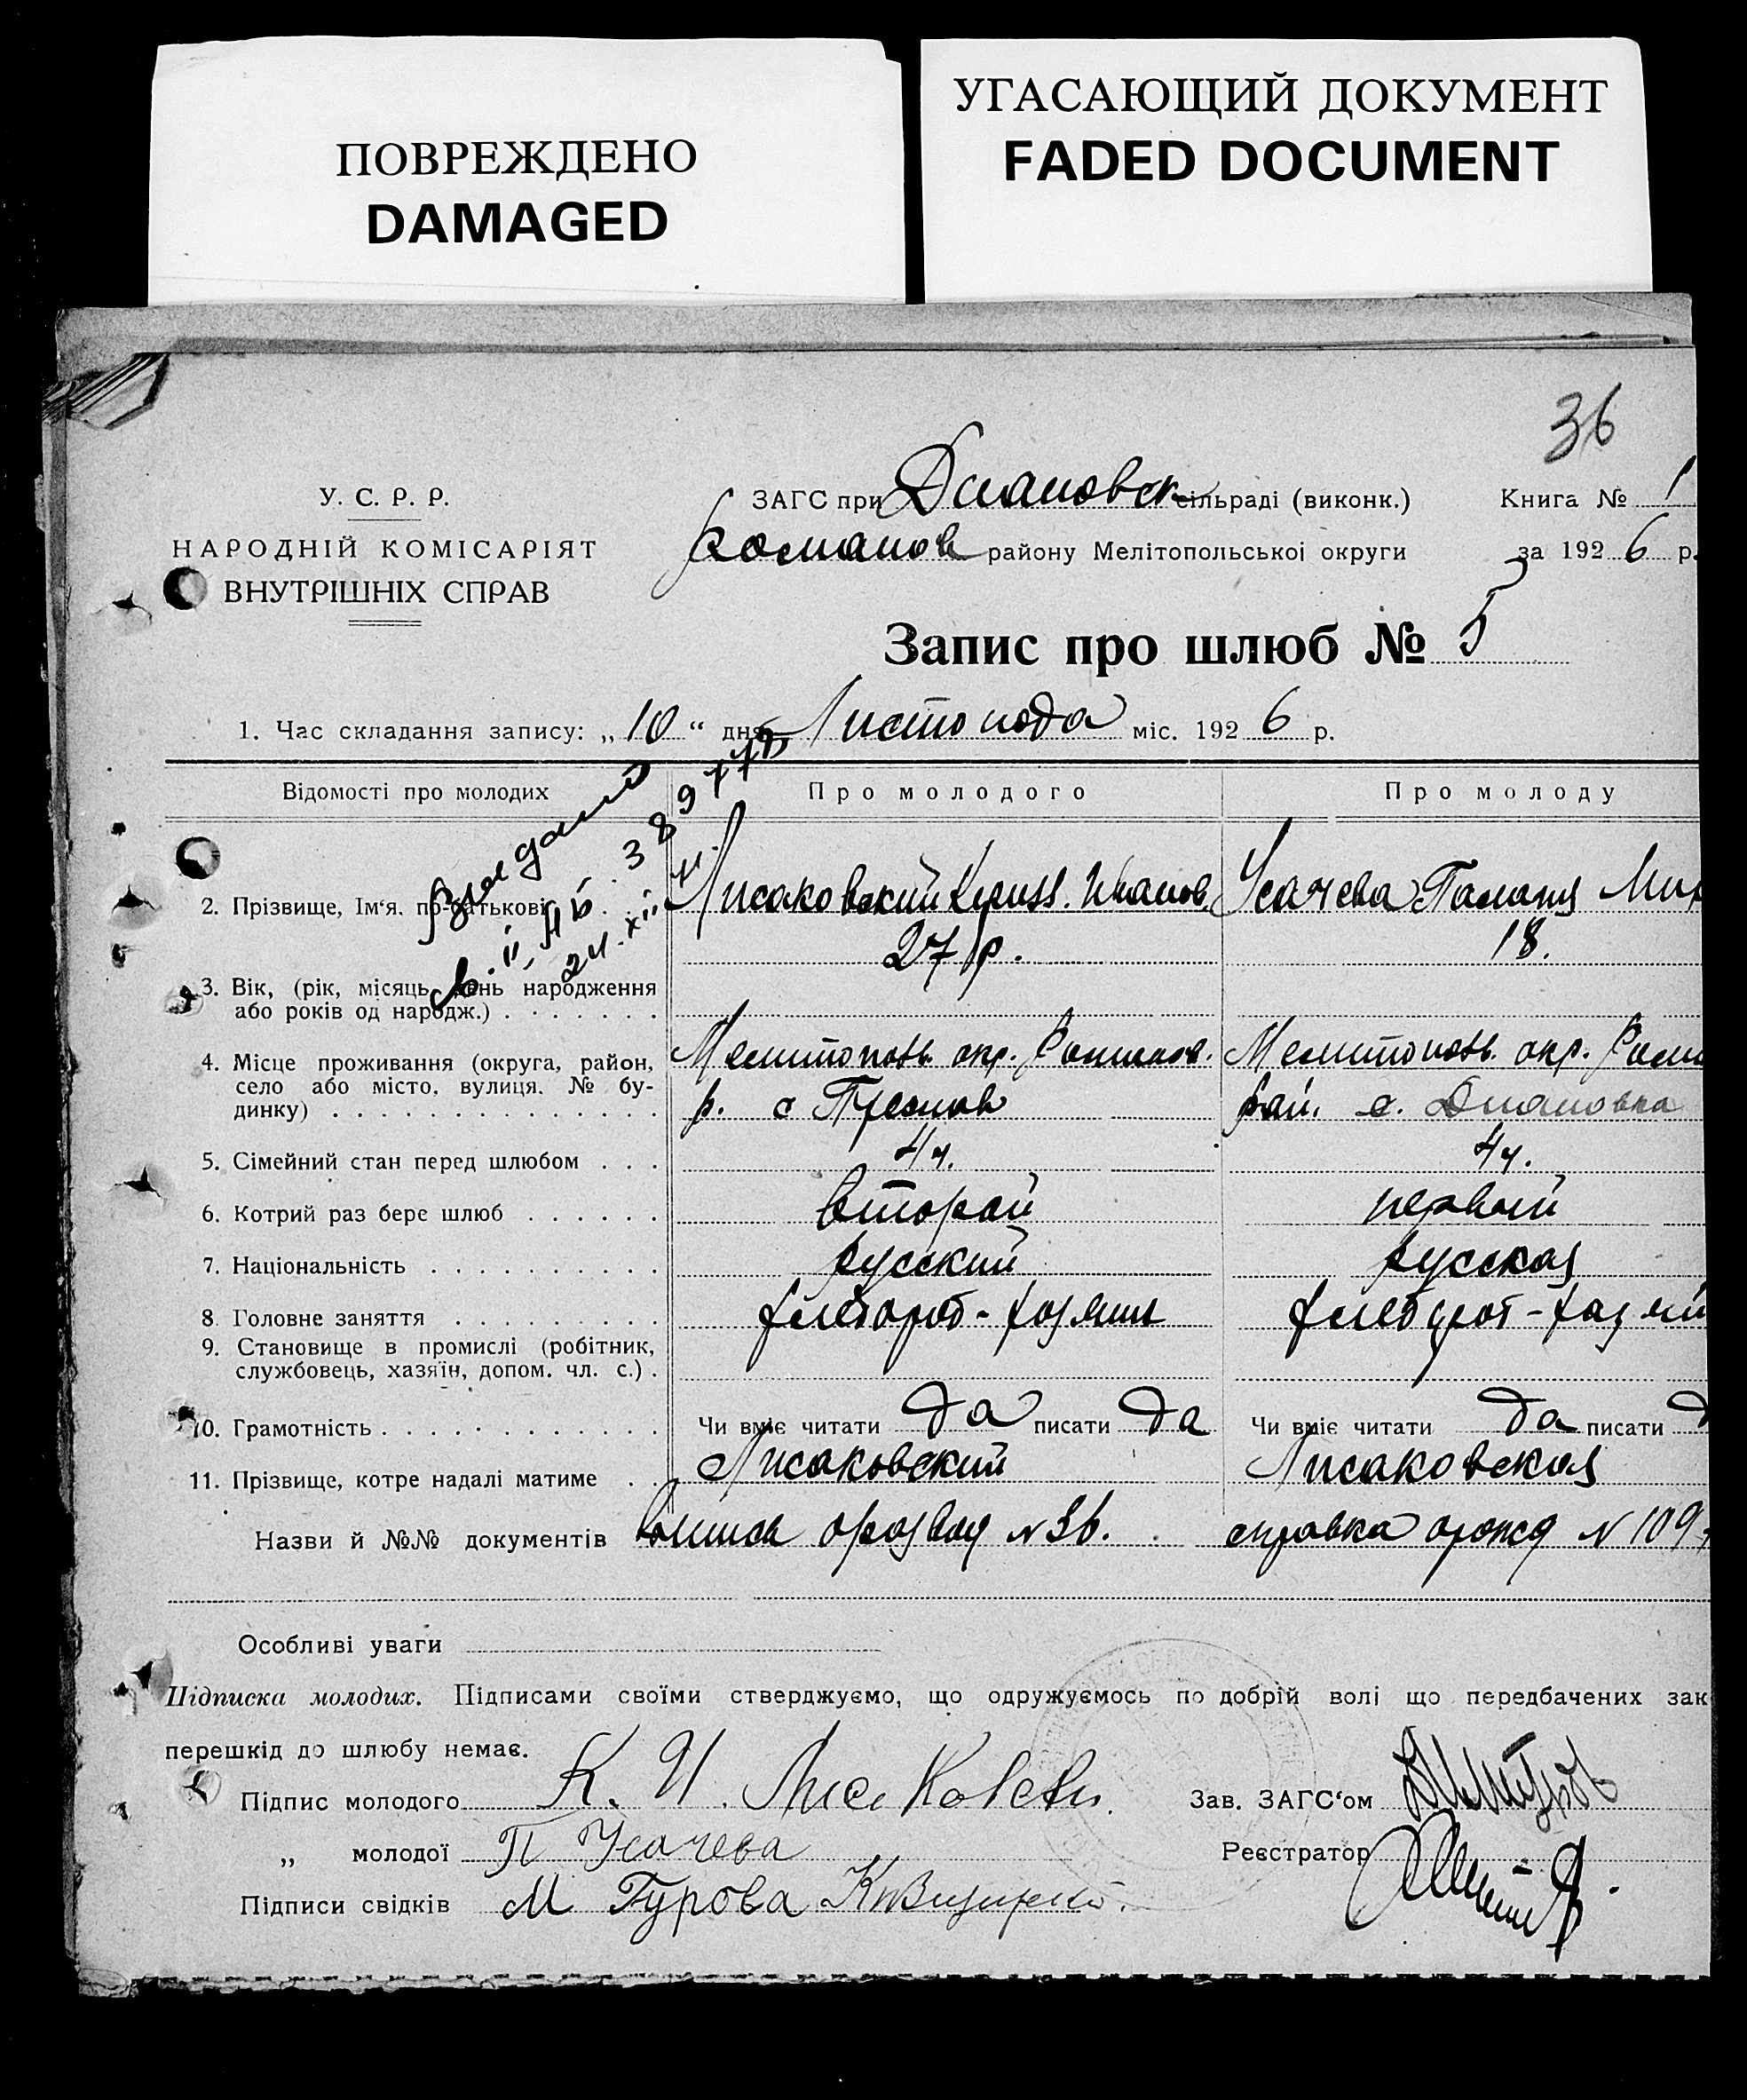 ПОВРЕЖДЕНО
DAMAGED
УГАСАЮЩИЙ ДОКУМЕНТ
FADED DOCUMENT
36
У. С. Р. Р.
НАРОДНІЙ КОМІСАРІЯТ
ВНУТРІШНІХ СПРАВ
ЗАГС при Диановск сільраді (виконк.) Книга № 1
Романов району Мелітопольської округи за 1926 р.
Запис про шлюб № 5
1. Час складання запису: „10“ дня Листопода міс. 1926 р.
Відомості про молодих Про молодого Про молоду
2. Прізвище, Ім'я. по-батькові Лисаковский Иванов. Усачева
27 р. 18.
3. Вік, (рік, місяць, день народження
або років од народж.)
4. Місце проживання (округа, район, Мелитопольь. окр. Романов. Мелитопольь. окр.
село або місто, вулиця. № бу-
динку) р. с рай. с. Диановка
5. Сімейний стан перед шлюбом
6. Котрий раз бере шлюб второй первый
7. Національність русский русская
8. Головне заняття хлебороб - хлебороб -
9. Становище в промислі (робітник,
службовець, хазяїн, допом. чл. с.)
10. Грамотність Чи вміє читати да писати да Чи вміє читати да писати
11. Прізвище, котре надалі матиме Лисаковский Лисаковская
Назви й №№ документів о развод N 36. справка о рожд N 109
Особливі уваги
Підписка молодих. Підписами своїми стверджуємо, що одружуємось по добрій волі що передбачених зак
перешкід до шлюбу немає.
Підпис молодого К. И. Зав. ЗАГС'ом
„ молодої П Усачева Реєстратор
Підписи свідків М Гурова